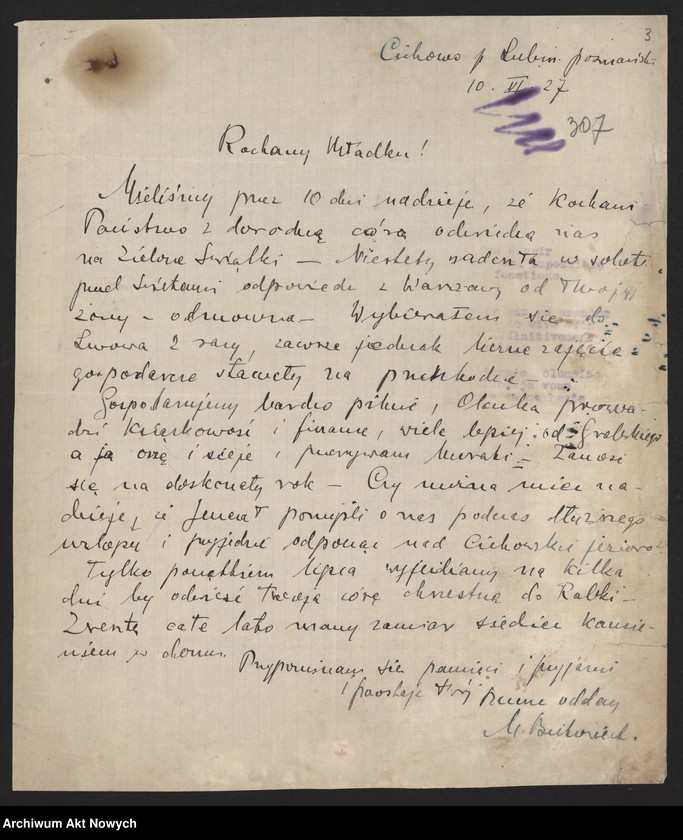 3
Cichowo p Lubin. poznański
10. VI 27
307
Kochany Władku!
Mieliśmy przez 10 dni nadzieję, że Kochani
Państwo z dorodną córą odwiedzą nas
na Zielone Świątki — Niestety nadeszła w sobotę
przed Świętami odpowiedź z Warszawy od Twojej
żony – odmowna – Wybierałem się do
Lwowa 2 razy, zawsze jednak liczne zajęcia
gospodarcze stawały na przeszkodzie.
Gospodarujemy bardzo pilnie, Oleńka prowa-
dzi książkowość i finanse, wiele lepiej od Grabskiego
a ja orzę i sieję i przerywam buraki – Zanosi
się na doskonały rok – Czy można mieć na-
dzieję, że Generał pomyśli o nas podczas
urlopu i przyjedzie odpocząć nad Cichowskie jezioro?
Tylko początkiem lipca wyjeżdżamy na kilka
dni by odwieźć twoją córę chrzestną do Rabki –
Zresztą całe lato mamy zamiar siedzieć
w domu.
Przypominam się pamięci i przyjaźni
i pozostaję Twój szczerze oddany
M.
Archiwum Akt Nowych